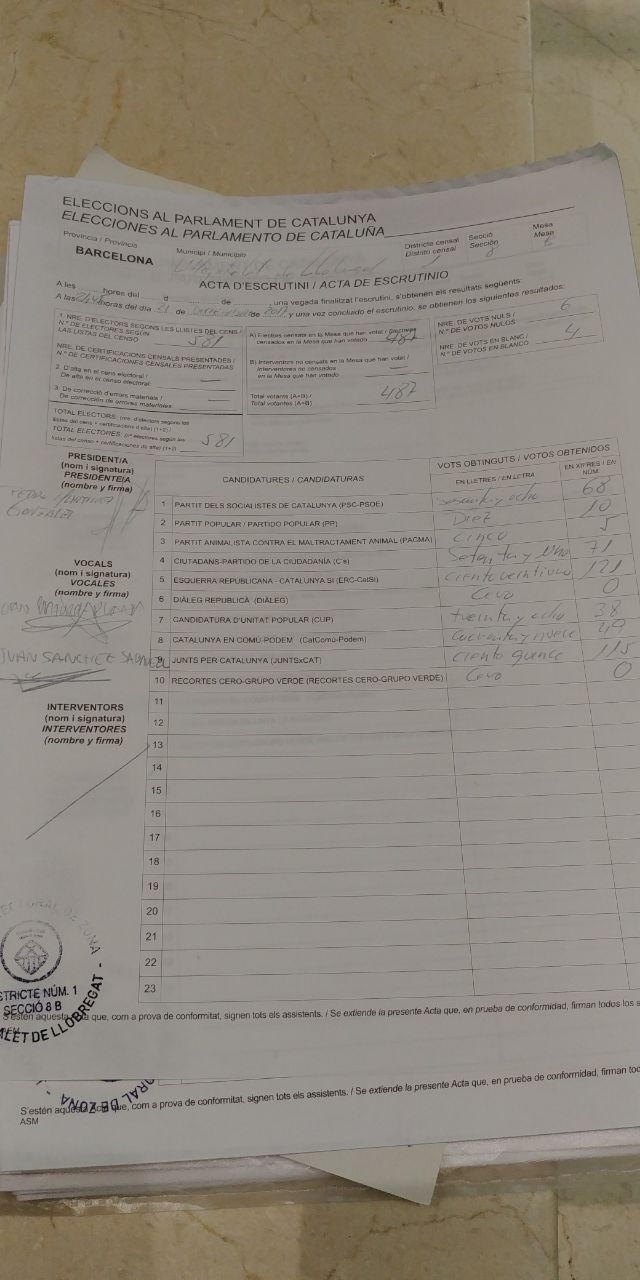 ELECCIONS AL PARLAMENT DE CATALUNYA
ELECCIONES AL PARLAMENTO DE CATALUÑA
Província / Provincia
BARCELONA
Municipi / Municipio
de Llobregat
Districte censal
Distrito censal
1
Secció
Sección
8
Mesa
Mesa
ACTA D'ESCRUTINI / ACTA DE ESCRUTINIO
A les hores del d de , una vegada finalitzat l'escrutini, s'obtenen els resultats següents:
A las horas del día 21 de de 2017 y una vez concluido el escrutinio, se obtienen los siguientes resultados:
1. NRE. D'ELECTORS SEGONS LES LLISTES DEL CENS /
N.º DE ELECTORES SEGÚN
LAS LISTAS DEL CENSO
581
NRE. DE CERTIFICACIONS CENSALS PRESENTADES /
N.º DE CERTIFICACIONES CENSALES PRESENTADAS
2. D'alta en el cens electoral /
De alta en el censo electoral:
3. De correcció d'errors materials /
De corrección de errores materiales:
TOTAL ELECTORS: (nre. d'electors segons les
llistes del cens + certificacions d'alta) (1+2) /
TOTAL ELECTORES: (nº electores según las
listas del censo + certificaciones de alta) (1+2)
581
A) Electors censats en la Mesa que han votat / Electores
censados en la Mesa que han votado
487
B) Interventors no censats en la Mesa que han votat /
Interventores no censados
en la Mesa que han votado
Total votants (A+B) /
Total votantes (A+B)
487
NRE. DE VOTS NULS /
N.º DE VOTOS NULOS
6
NRE. DE VOTS EN BLANC /
N.º DE VOTOS EN BLANCO
4
PRESIDENT/A
(nom i signatura)
PRESIDENTE/A
(nombre y firma)
VOCALS
(nom i signatura)
VOCALES
(nombre y firma)
JUAN SANCHEZ
INTERVENTORS
(nom i signatura)
INTERVENTORES
(nombre y firma)
CANDIDATURES / CANDIDATURAS
VOTS OBTINGUTS / VOTOS OBTENIDOS
EN LLETRES / EN LETRA
EN XIFRES / EN NÚM.
1 PARTIT DELS SOCIALISTES DE CATALUNYA (PSC-PSOE) sesenta y ocho 68
2 PARTIT POPULAR / PARTIDO POPULAR (PP) Diez 10
3 PARTIT ANIMALISTA CONTRA EL MALTRACTAMENT ANIMAL (PACMA) Cinco 5
4 CIUTADANS-PARTIDO DE LA CIUDADANÍA (C's) Setenta y Uno 71
5 ESQUERRA REPUBLICANA - CATALUNYA SÍ (ERC-CatSí) Ciento veintiuno 121
6 DIÀLEG REPUBLICÀ (DIÀLEG) Cero 0
7 CANDIDATURA D'UNITAT POPULAR (CUP) treinta y ocho 38
8 CATALUNYA EN COMÚ-PODEM (CatComú-Podem) Cuarenta y nueve 49
9 JUNTS PER CATALUNYA (JUNTSxCAT) Ciento quince 115
10 RECORTES CERO-GRUPO VERDE (RECORTES CERO-GRUPO VERDE) Cero 0
11
12
13
14
15
16
17
18
19
20
21
22
23
DE ZONA
STRICTE NÚM. 1
SECCIÓ 8 B
ALET DE LLOBREGAT -
S'estén aquesta Acta que, com a prova de conformitat, signen tots els assistents. / Se extiende la presente Acta que, en prueba de conformidad, firman todos los a
ORAL DE ZONA -
S'estén aquesta Acta que, com a prova de conformitat, signen tots els assistents. / Se extiende la presente Acta que, en prueba de conformidad, firman todo
ASM